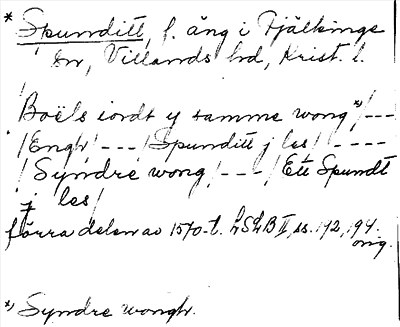 * Spunditt, f. äng i Fjälkinge
sn, Villands hd, Krist. l.
Boëls iordt y samme wong *) / ---
/ Engh / --- / Spunditt j les / ----
/ Syndre wong / --- / Ett Spundt
j les /
förra delen av 1570-t. LSLB II, ss. 192, 194.
orig.
*) Syndre wongh.